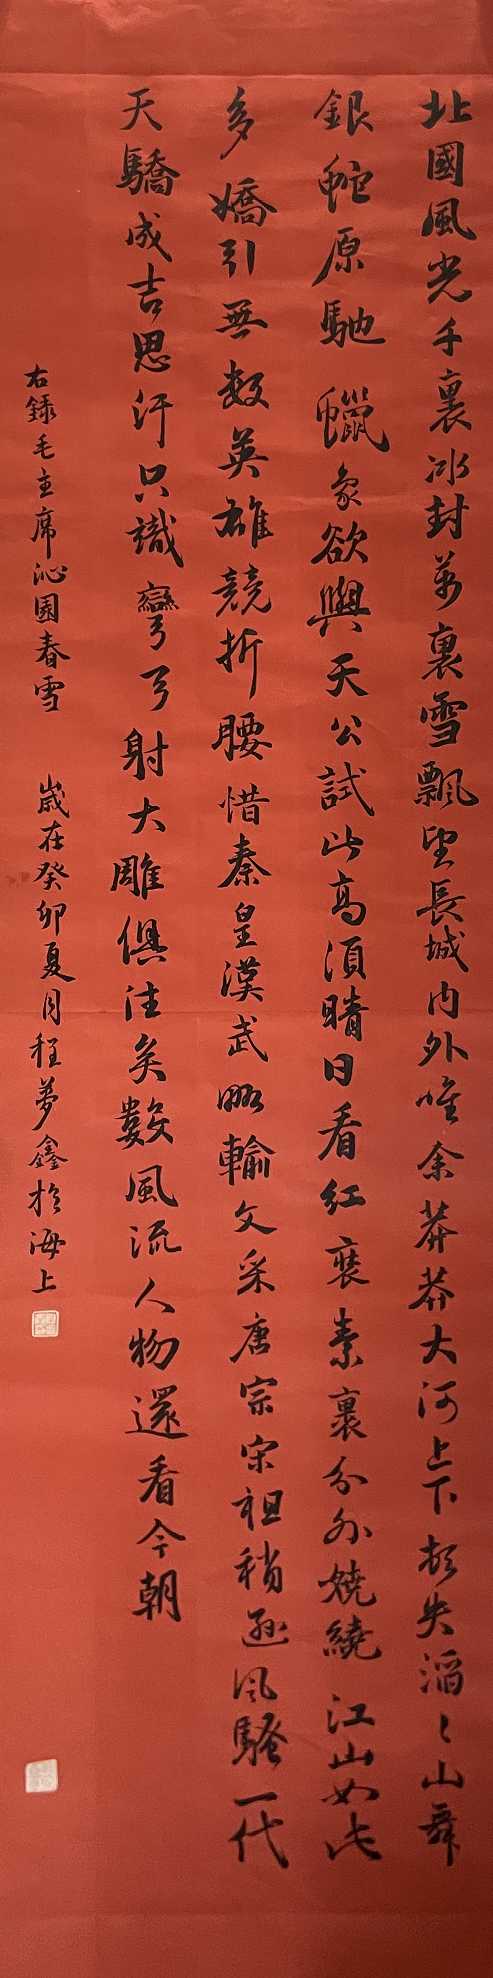 北國風光千裏冰封萬裏雪飄望長城内外唯余莽莽大河上下頓失滔〻山舞
銀蛇原馳蠟象欲與天公試比高須晴日看紅裝素裏分外嬈繞江山如此
多嬌引無數英雄競折腰惜秦皇漢武略輸文采唐宗宋祖稍遜風騷一代
天驕成吉思汗只識彎弓射大雕俱往矣數風流人物還看今朝
右録毛主席沁園春雪 歲在癸卯夏月程夢鑫於海上